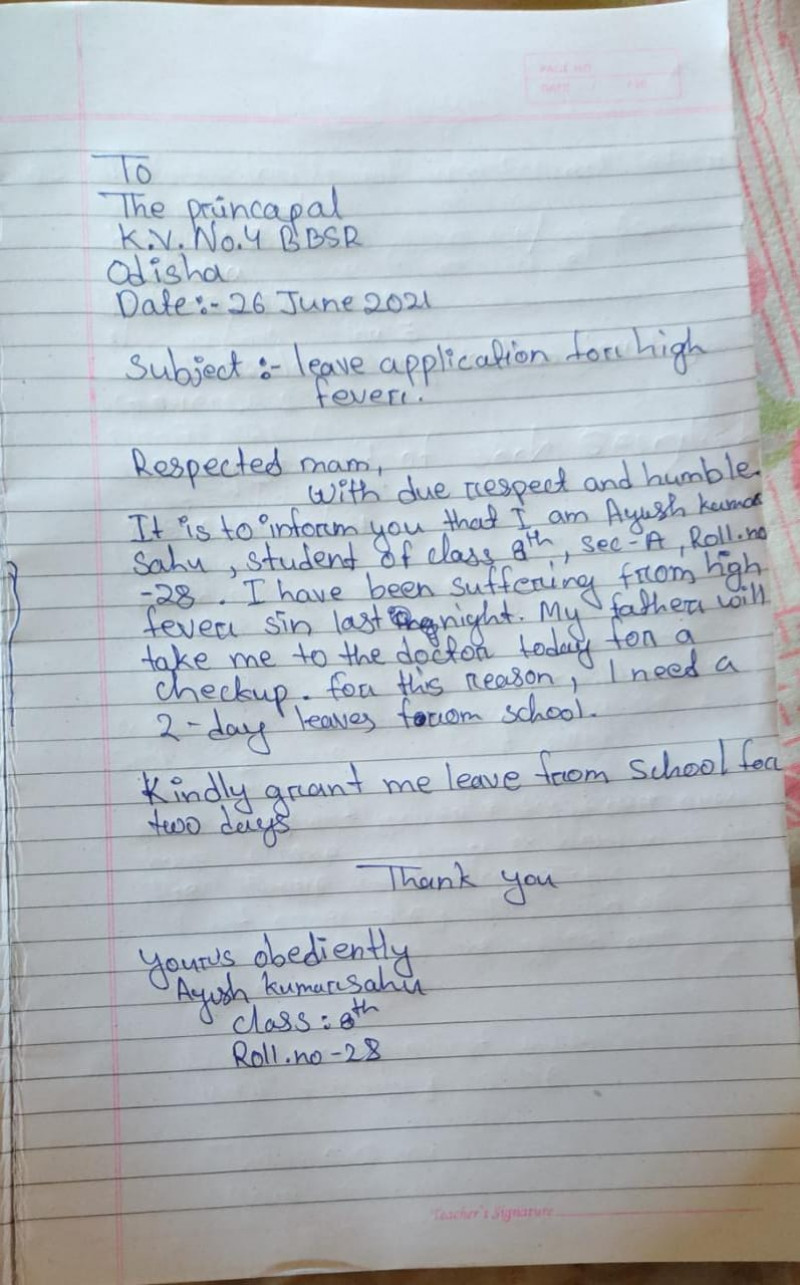 PAGE NO.
DATE / /20
To
The princapal
K.V. No.4 BBSR
Odisha
Date:- 26 June 2021
Subject :- leave application for high
fever.
Respected mam,
With due respect and humble.
It is to inform you that I am Ayush kumar
Sahu , student of class 8th , sec-A , Roll.no
-28 . I have been suffering from high
fever sin last night. My father will
take me to the doctor today for a
checkup. for this reason, I need a
2-day leaves from school.
Kindly grant me leave from School for
two days
Thank you
yours obediently
Ayush kumar sahu
class : 8th
Roll.no -28
Teacher's Signature